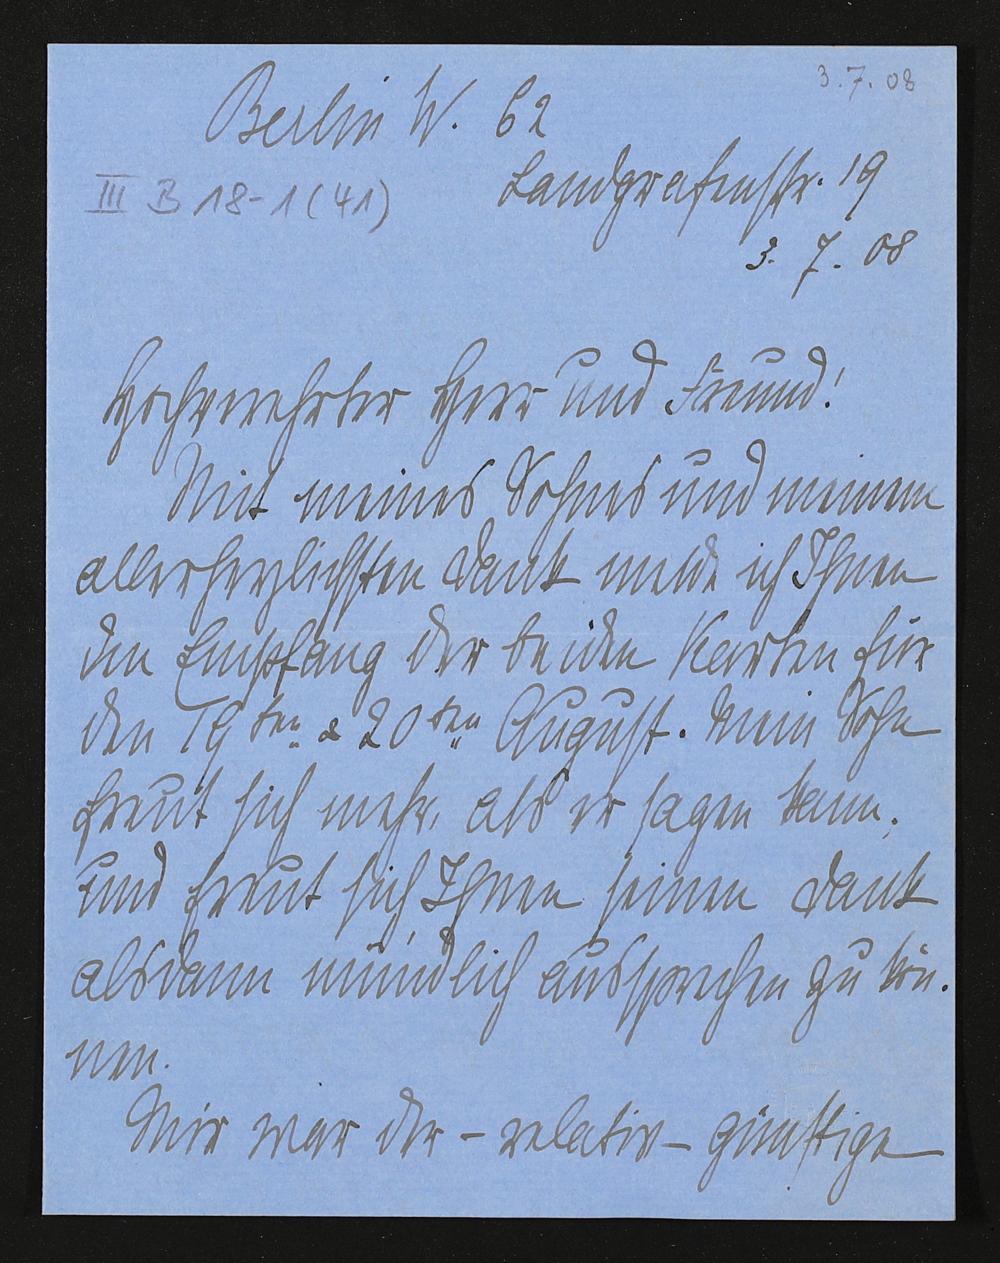 3.7.08
Berlin W. 62
Landgrafenstr. 19
III B 18-1(41)
3. 7. 08
Hochverehrter Herr und Freund!
Mit meines Sohnes und meinem
allerherzlichsten Dank melde ich Ihnen
den Empfang der beiden Karten für
den 19ten & 20ten August. Mein Sohn
freut sich mehr, als er sagen kann,
und freut sich Ihnen seinen Dank
alsdann mündlich aussprechen zu kön-
nen.
Mir war der – relativ – günstige